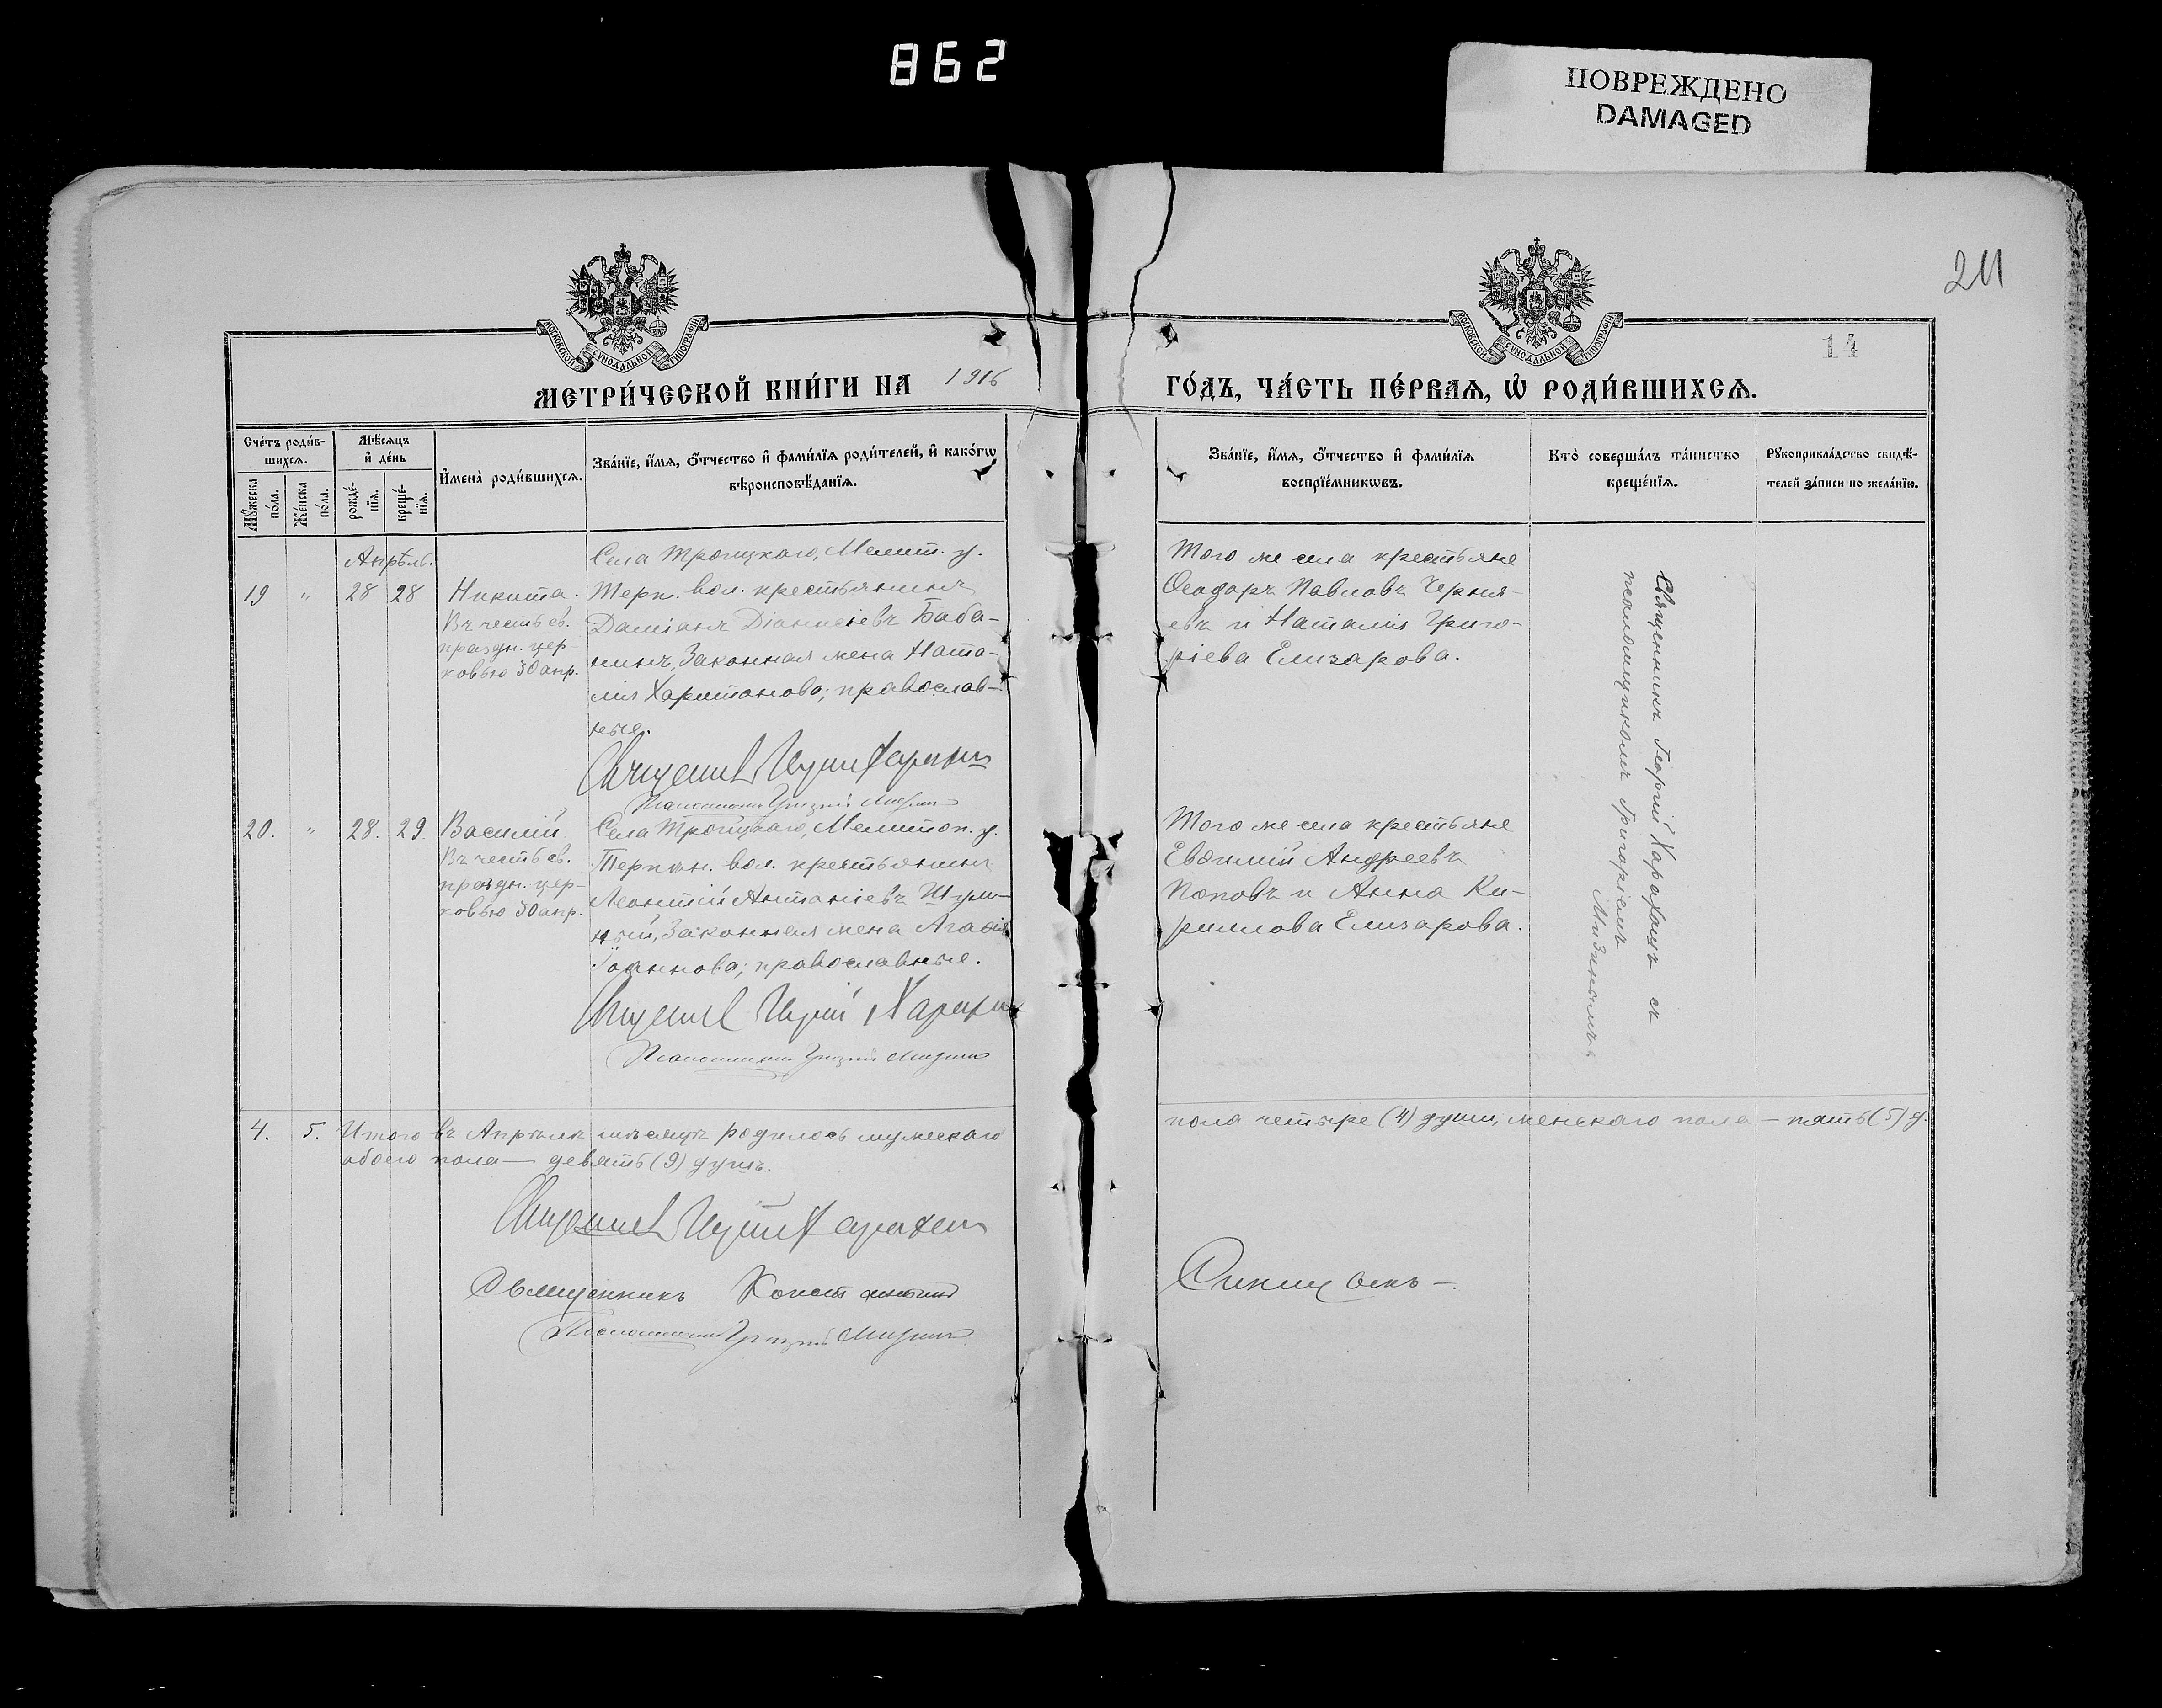 862
ПОВРЕЖДЕНО
DAMAGED
211
14
МОСКОВСКОЙ СѴНОДАЛЬНОЙ ТИПОГРАФІИ
МОСКОВСКОЙ СѴНОДАЛЬНОЙ ТИПОГРАФІИ
МЕТРИ́ЧЕСКОЙ КНИ́ГИ НА 1916 ГО́ДЪ, ЧА́СТЬ ПЕ́РВАѦ, Ѡ҆ РОДИ́ВШИХСѦ.
Сче́тъ роди́в-
шихсѧ.
Мꙋ́жеска по́ла.
Же́нска по́ла.
Мѣ́сѧцъ
и҆ де́нь
рожде́-
нїѧ.
креще́-
нїѧ.
И҆мена̀ роди́вшихсѧ.
Зва́нїе, и҆́мѧ, ѻ҆́тчество и҆ фами́лїѧ роди́телей, и҆ како́гѡ
вѣроисповѣ́данїѧ.
Зва́нїе, и҆́мѧ, ѻ҆́тчество и҆ фами́лїѧ
воспрїе́мникѡвъ.
Кто̀ соверша́лъ та́инство
креще́нїѧ.
Рꙋкоприкла́дство свидѣ́-
телей за́писи по жела́нїю.
Апрѣль.
19 " 28 28 Никита.
Въ честь св.
праздн. цер-
ковью 30 апр.
Села Троицкаго, Мелит. у.
Терп. вол. крестьянинъ
Даміанъ Діонисіевъ Баба-
нинъ, Законная жена Ната-
лія Харитонова; православ-
ные.
Священник
Псаломщикъ Григорій Мизинъ
Того же села крестьяне
Ѳеодоръ Павловъ Черня-
евъ и Наталія Григо-
ріева Елизарова.
Священникъ Георгій Харахашъ съ
псаломщикомъ Григоріемъ
Мизинымъ.
20. " 28. 29. Василій
Въ честь св.
праздн. цер-
ковью 30 апр.
Села Троицкаго, Мелитоп. у.
Терпѣн. вол. крестьянинъ
Леонтій Антоніевъ Шум-
ный, Законная жена Агафія
Іоаннова; православные.
Священник
Псаломщикъ Григорій Мизинъ
Того же села крестьяне
Евѳимій Андреевъ
Поповъ и Анна Ки-
риллова Елизарова.
4. 5. Итого въ Апрѣлѣ мѣсяцѣ родилось мужескаго пола четыре (4) души, женскаго пола — пять (5) д.
обоего пола — девять (9) душъ.
Священник
Священникъ Константинъ
Псаломщикъ Григорій Мизинъ